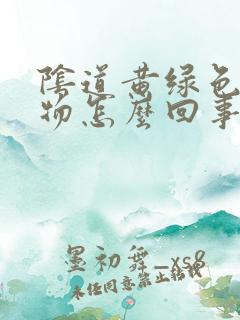 陰道黄绿色
物怎麼回事
墨初舞_xs8
未经同意禁止转载